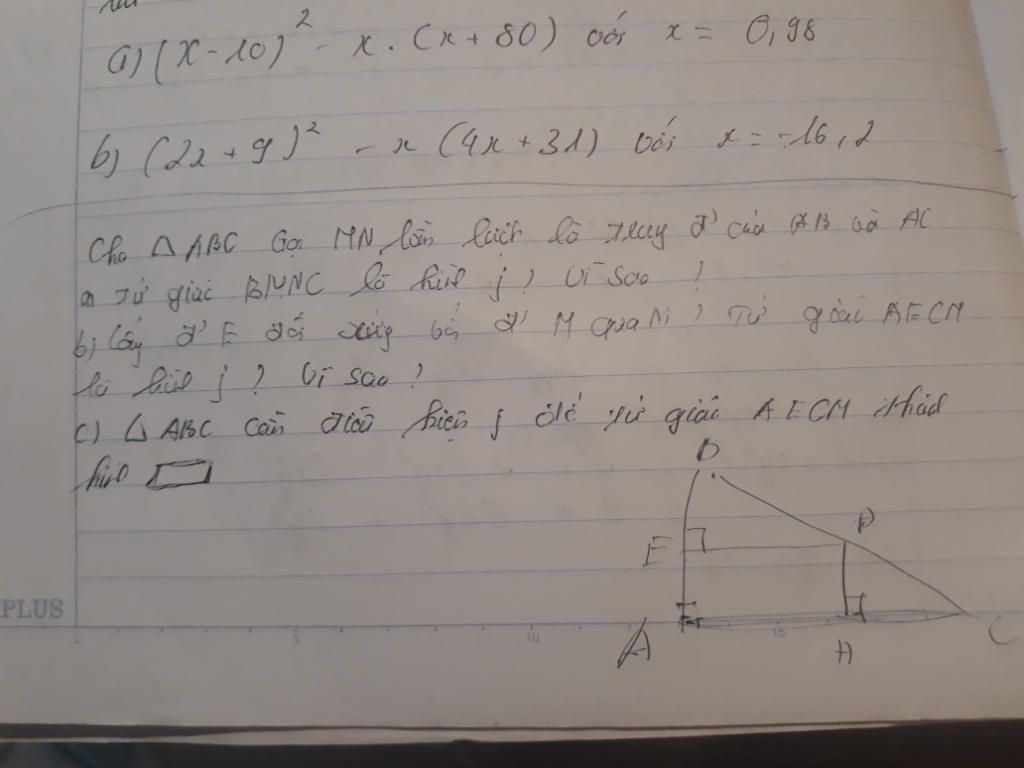 a) (x-10)² - x . (x + 80) với x = 0,98
b) (2x + 9)² - x (4x + 31) với x = -16,2
Cho △ ABC Gọi MN lần lượt là trung đ' của AB và AC
a) Tứ giác BMNC là hình j ? Vì sao ?
b) Lấy đ' E đối xứng với đ' M qua N ? Tứ giác AECM
là hình j ? Vì sao ?
c) △ ABC cần điều kiện j để tứ giác AECM thành
hình ▭
B
E
D
A
H
C
PLUS
0 5 10 15